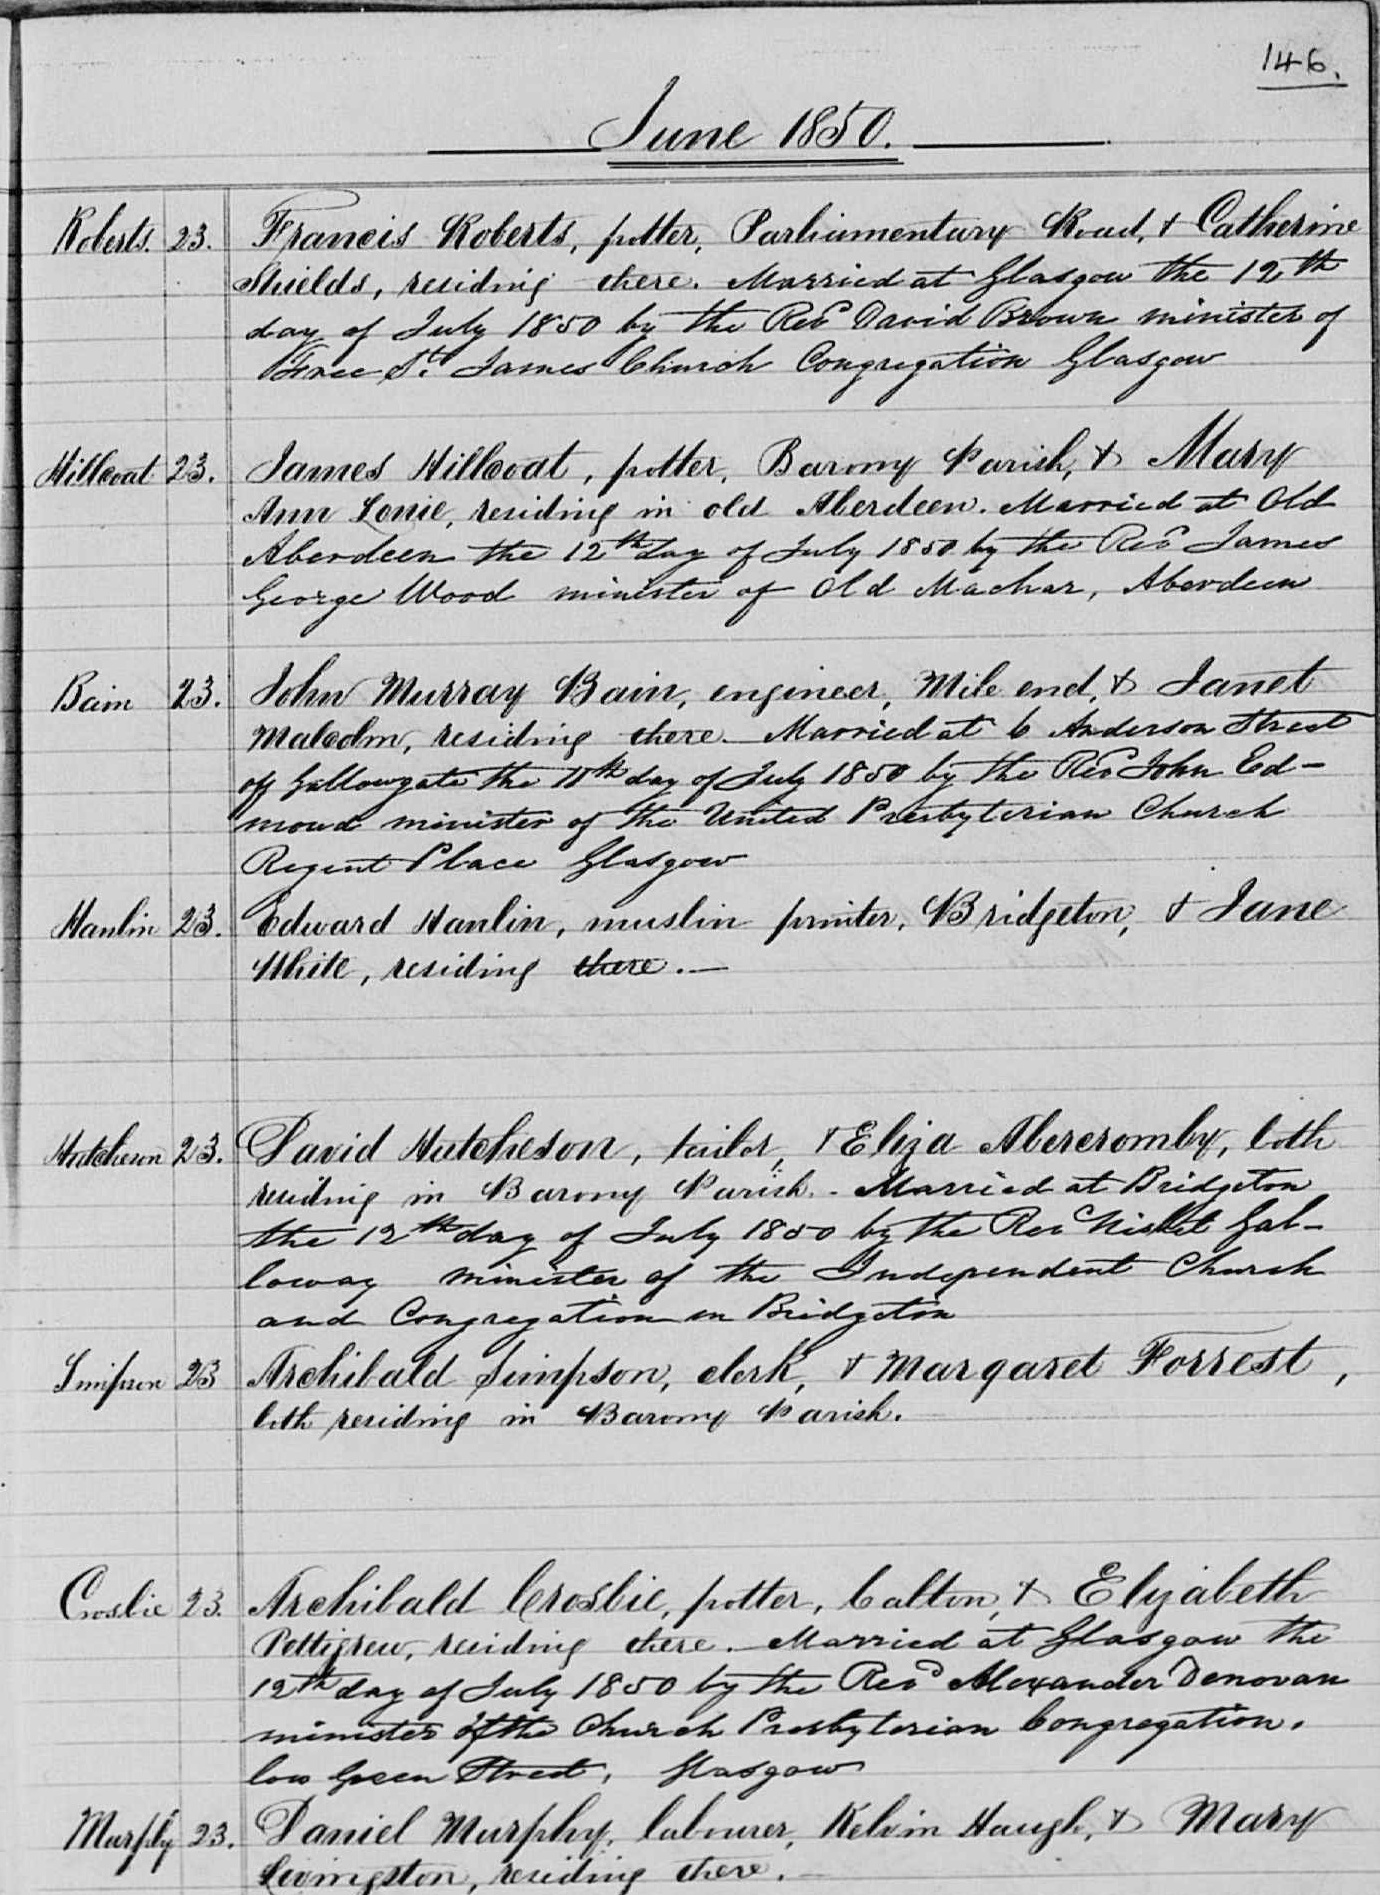 146.
June 1850.
Roberts. 23. Francis Roberts, potter, Parliamentary Road, & Catherine
Shields, residing there. Married at Glasgow the 12th
day of July 1850 by the Revd David Brown minister of
Free St. James Church Congregation Glasgow
Hillcoat 23. James Hillcoat, potter, Barony Parish, & Mary
Ann Lonie, residing in old Aberdeen. Married at Old
Aberdeen the 12th day of July 1850 by the Revd James
George Wood minister of Old Machar, Aberdeen
Bain 23. John Murray Bain, engineer, Mile end, & Janet
Malcolm, residing there. Married at 6 Anderson Street
off Gallowgate the 11th day of July 1850 by the Revd John Ed-
mond minister of the United Presbyterian Church
Regent Place Glasgow
Hanlin 23. Edward Hanlin, muslin printer, Bridgeton, & Jane
White, residing there.
Hutcheson 23. David Hutcheson, tailor, & Eliza Abercromby, both
residing in Barony Parish. Married at Bridgeton
the 12th day of July 1850 by the Revd Nisbet Gal-
loway minister of the Independent Church
and Congregation in Bridgeton
Simpson 23 Archibald Simpson, clerk, & Margaret Forrest,
both residing in Barony Parish.
Crosbie 23. Archibald Crosbie, potter, Calton, & Elizabeth
Pettigrew, residing there. Married at Glasgow the
12th day of July 1850 by the Revd Alexander Donovan
minister of the Church Presbyterian Congregation.
low Green Street, Glasgow
Murphy 23. Daniel Murphy, labourer, Kelvin Haugh, & Mary
Livingston, residing there.